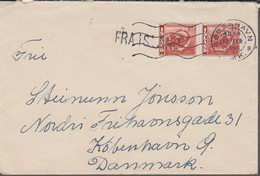 Frie
FRA IS
KØBENHAVN
Steinunn Jónsson
Nordri Frihavnsgade 31
København Ø.
Danmark.